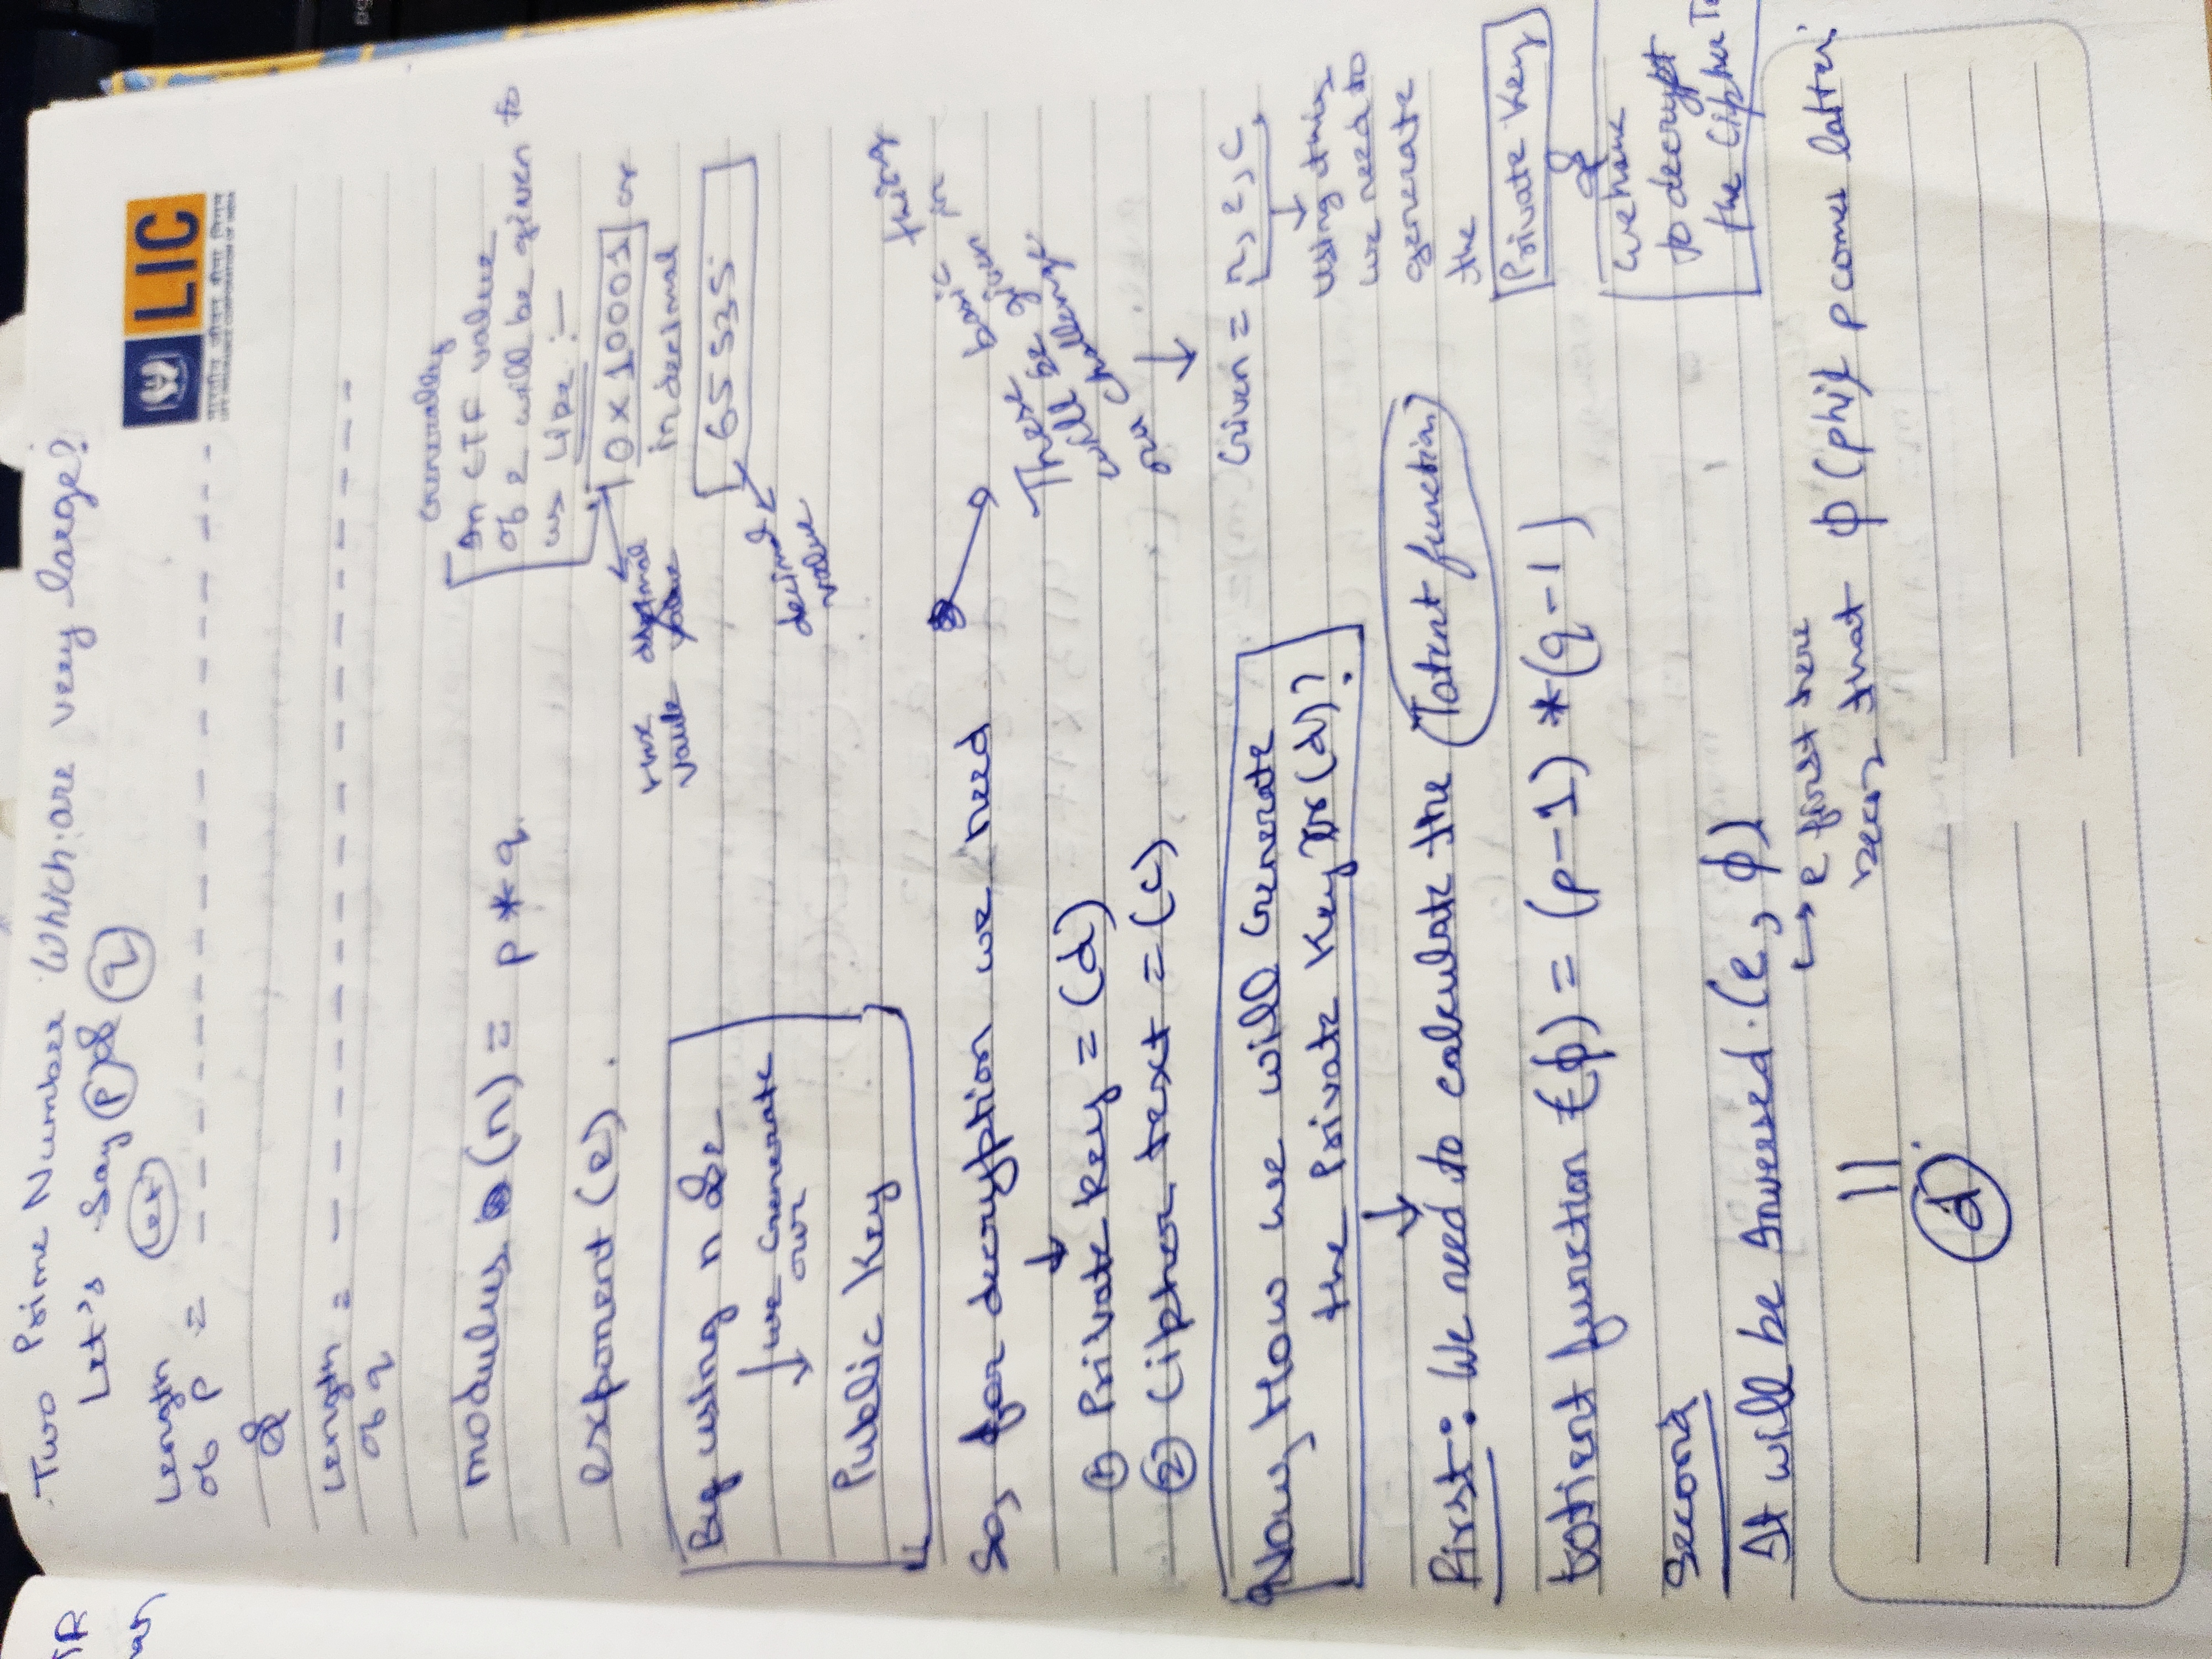 Two Prime Number Which are very large?
Let's Say P & q
Let
LIC
भारतीय जीवन बीमा निगम
LIFE INSURANCE CORPORATION OF INDIA
Length
of P =
&
Length =
of q
modulus (n) = p * q
exponent (e).
Generally
In CTF value
of e will be given to
us like :-
0x10001 or
in decimal
65535
hex
value
decimal
value
By using n & e
we Generate
our
Public Key
So, for decryption we need
① Private key = (d)
② Cipher text = (c)
thing
basic
There
will be given
challenge
Given = n, e, c
using this
we need to
generate
the
Private Key
&
we have
to decrypt
the Cipher
Now, How we will Generate
the Private Key (d)?
First: We need to calculate the Totent function
totient function (ϕ) = (p-1) * (q-1)
Second
It will be Inversed. (e, ϕ)
e first here
that ϕ (phi) comes latter.
||
d